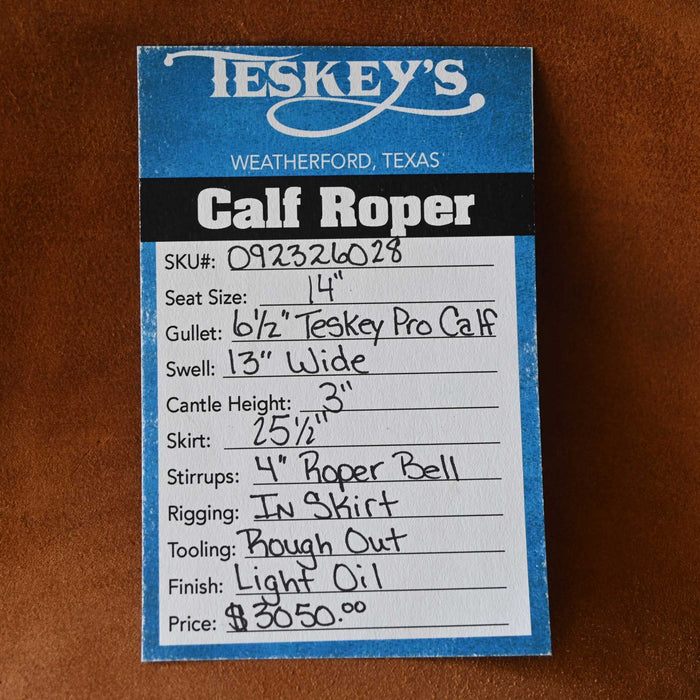 TESKEY'S
WEATHERFORD, TEXAS
Calf Roper
SKU#: 092326028
Seat Size: 14"
Gullet: 6½" Teskey Pro Calf
Swell: 13" Wide
Cantle Height: 3"
Skirt: 25½"
Stirrups: 4" Roper Bell
Rigging: In Skirt
Tooling: Rough Out
Finish: Light Oil
Price: $3050.00